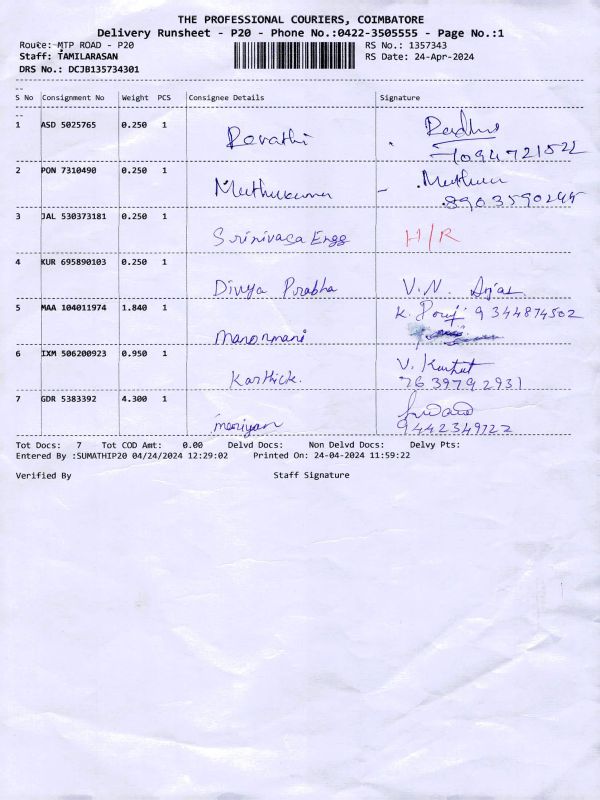 THE PROFESSIONAL COURIERS, COIMBATORE
Delivery Runsheet - P20 - Phone No.:0422-3505555 - Page No.:1
Route: MTP ROAD - P20 RS No.: 1357343
Staff: TAMILARASAN RS Date: 24-Apr-2024
DRS No.: DCJB135734301
S No Consignment No Weight PCS Consignee Details Signature
1 ASD 5025765 0.250 1 Revathi
2 PON 7310490 0.250 1 Muthukumar Muthu
8903590245
3 JAL 530373181 0.250 1 Srinivasa Engg H/R
4 KUR 695890103 0.250 1 Divya Prabha V.N.
5 MAA 104011974 1.840 1 Manonmani K. 9344874502
6 IXM 506200923 0.950 1 Karthick. V.
7639792931
7 GDR 5383392 4.300 1 Mariyan
9442349122
Tot Docs: 7 Tot COD Amt: 0.00 Delvd Docs: Non Delvd Docs: Delvy Pts:
Entered By :SUMATHIP20 04/24/2024 12:29:02 Printed On: 24-04-2024 11:59:22
Verified By Staff Signature